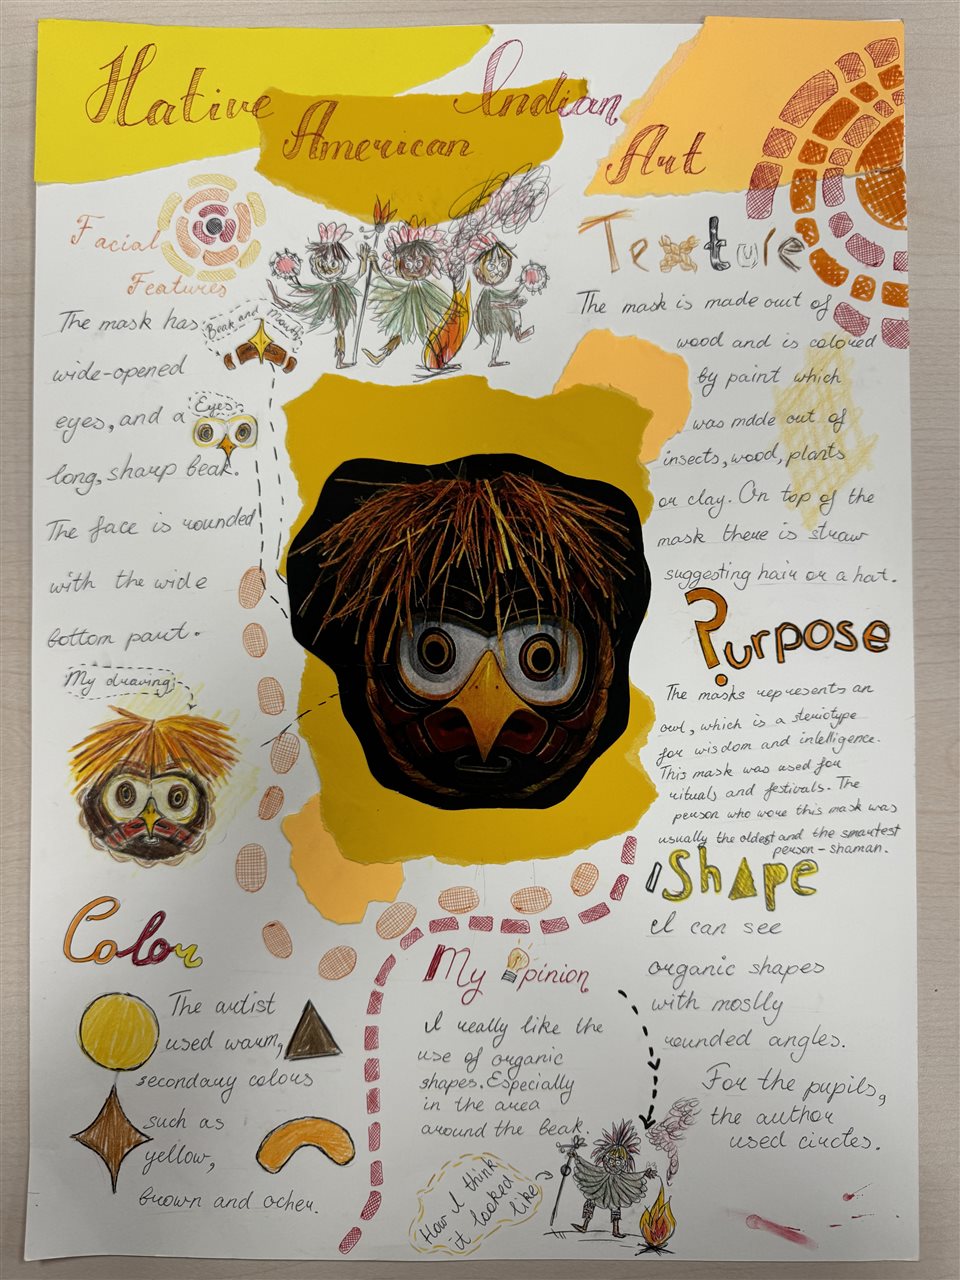 Native
American
Indian
Art
Facial
Features
The mask has
wide-opened
eyes, and a
long, sharp beak.
The face is rounded
with the wide
bottom part.
Beak and Mouth
Eyes
My drawing
Texture
The mask is made out of
wood and is colored
by paint which
was made out of
insects, wood, plants
or clay. On top of the
mask there is straw
suggesting hair or a hat.
Purpose
The masks represents an
owl, which is a steriotype
for wisdom and intelligence.
This mask was used for
rituals and festivals. The
person who wore this mask was
usually the oldest and the smartest
person - shaman.
Shape
I can see
organic shapes
with mostly
rounded angles.
For the pupils,
the author
used circles.
Color
The artist
used warm,
secondary colours
such as
yellow,
brown and ocher.
My Opinion
I really like the
use of organic
shapes. Especially
in the area
around the beak.
How I think
it looked
like